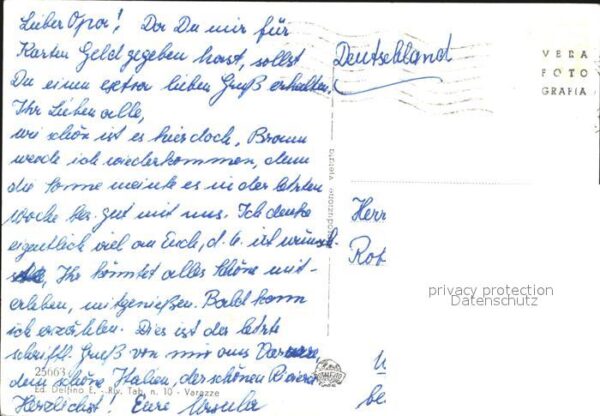 Lieber Opa! Da Du mir für
Karten Geld gegeben hast, sollst
Du einen extra lieben Gruß erhalten.
Ihr Lieben alle,
wie schön ist es hier doch, Braun
werde ich wiederkommen, denn
die Sonne meinte es in der letzten
Woche bes. gut mit uns. Ich denke
eigentlich viel an Euch, d. h. ich wünsch-
Ihr könntet alles Schöne mit-
erleben, mitgenießen. Bald kann
ich erzählen. Dies ist der letzte
schriftl. Gruß von mir aus Varazze,
dem schönen Italien, der schönen Riviera
Herzlichst! Eure Ursula
Deutschland
VERA
FOTO
GRAFIA
Herr
Rob
privacy protection
Datenschutz
25663
Ed. Delfino E. - Riv. Tab. n. 10 - Varazze